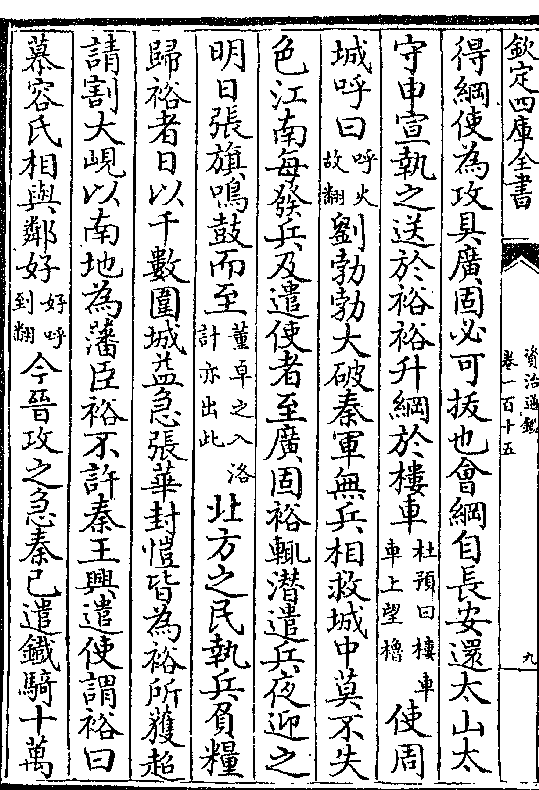 欽定四庫全書
資治通鑑
卷一百十五
九
得綱使為攻具廣固必可拔也會綱自長安還太山太
守申宣執之送於裕裕升綱於樓車杜預曰樓車車上望櫓使周
城呼曰呼火故翻劉勃勃大破秦軍無兵相救城中莫不失
色江南每發兵及遣使者至廣固裕輒潛遣兵夜迎之
明日張旗鳴鼓而至董卓之入洛計亦出此北方之民執兵負糧
歸裕者日以千數圍城益急張華封愷皆為裕所獲超
請割大峴以南地為藩臣裕不許秦王興遣使謂裕曰
慕容氏相與鄰好好呼到翻今晉攻之急秦已遣鐵騎十萬